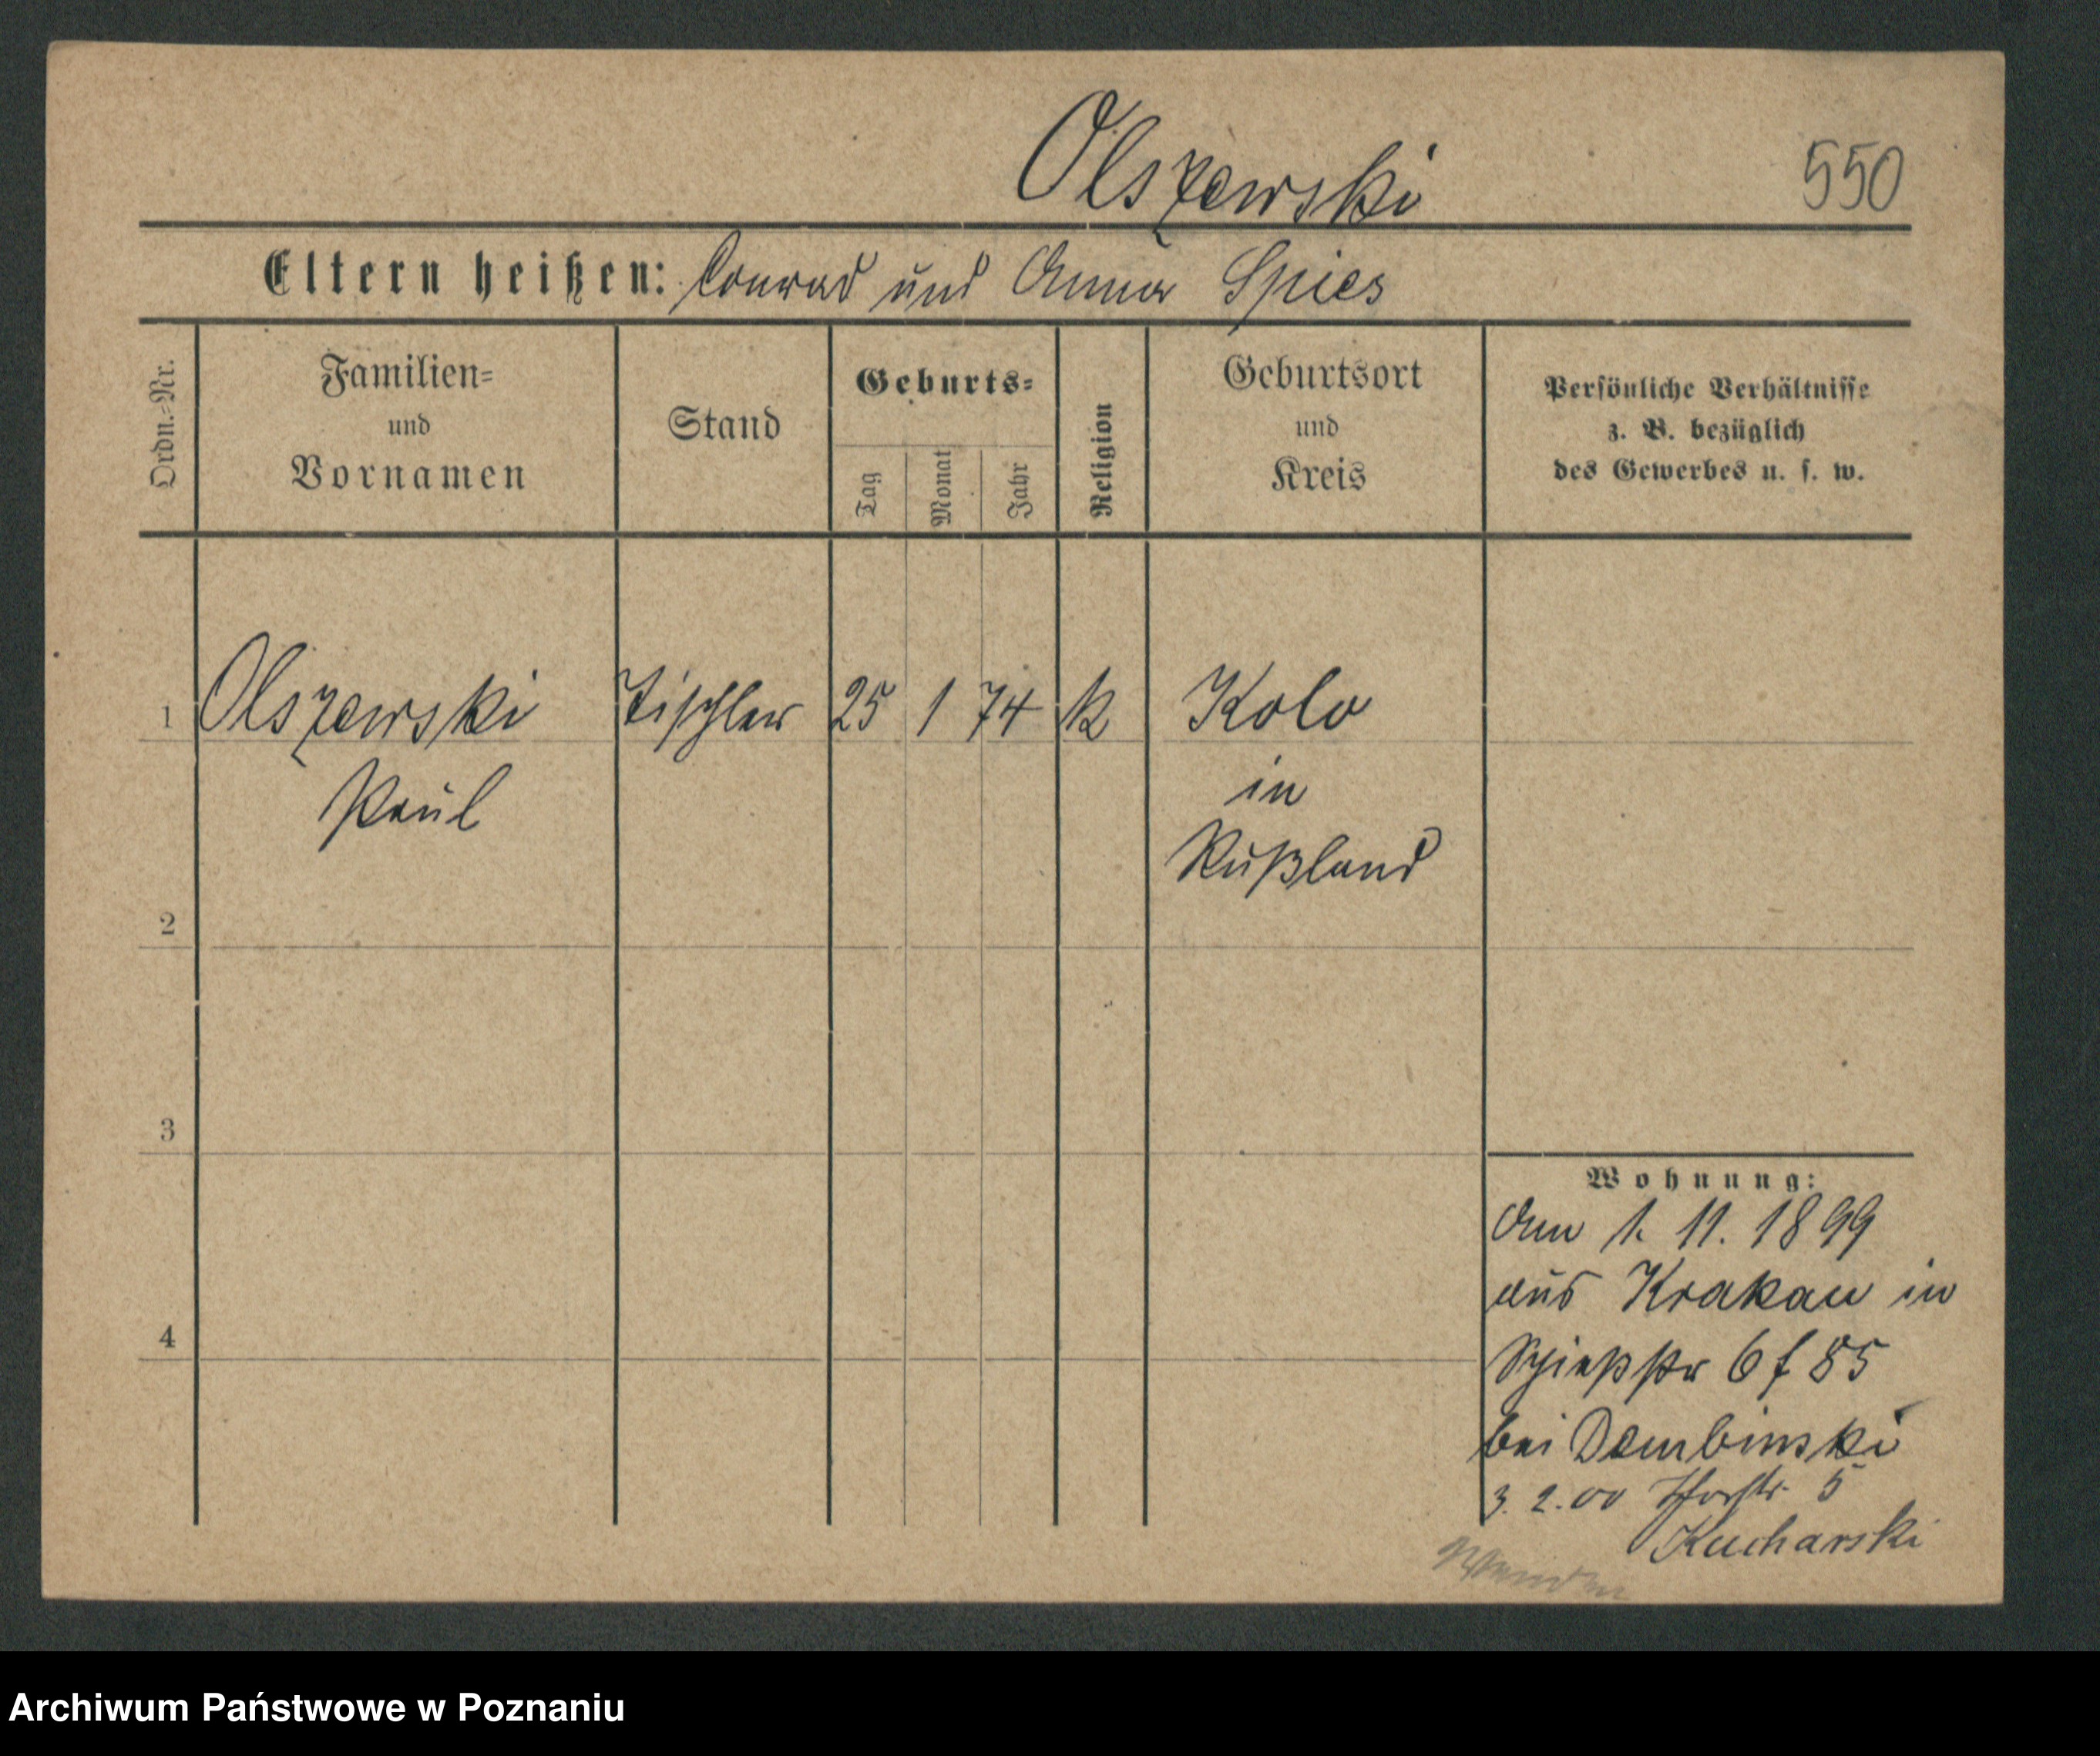 Olszewski
550
Eltern heißen: Conrad und Anna Spies
Ordn.-Nr.
Familien-
und
Vornamen
Stand
Geburts-
Tag
Monat
Jahr
Religion
Geburtsort
und
Kreis
Persönliche Verhältnisse
z. B. bezüglich
des Gewerbes u. s. w.
1 Olszewski Tischler 25 1 74 k Kolo
Paul in
Rußland
2
3
4
Wohnung:
Am 1. 11. 1899
aus Krakau in
6 f 85
bei Dembinski
3. 2. 00 5
Kucharski
Wenden
Archiwum Państwowe w Poznaniu